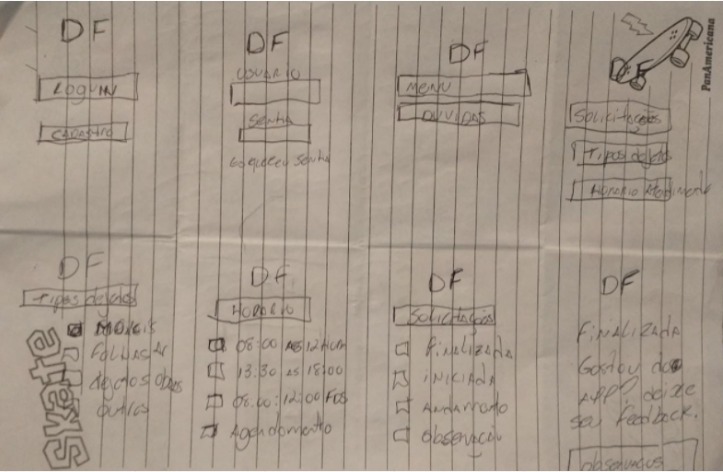 DF
LOGUIN
CADASTRO
DF
USUARIO
SENHA
Esqueceu senha
DF
MENU
DUVIDAS
PanAmericana
Solicitações
Tipos de
Horario Atendimento
DF
Tipos de
MOVEIS
Folhas
outros
DF
HORARIO
08:00 AS 12
13:30 AS 18:00
08:00:12:00
Agendamento
DF
Solicitações
FINALIZADA
INICIADA
Andamento
observação
DF
FINALIZADA
Gostou do
APP? deixe
seu feedback.
observações
Skate